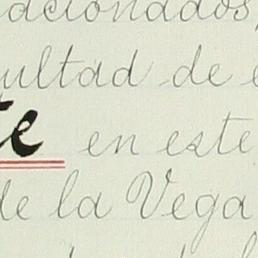 acionados,
ultad de e
te en este
de la Vega